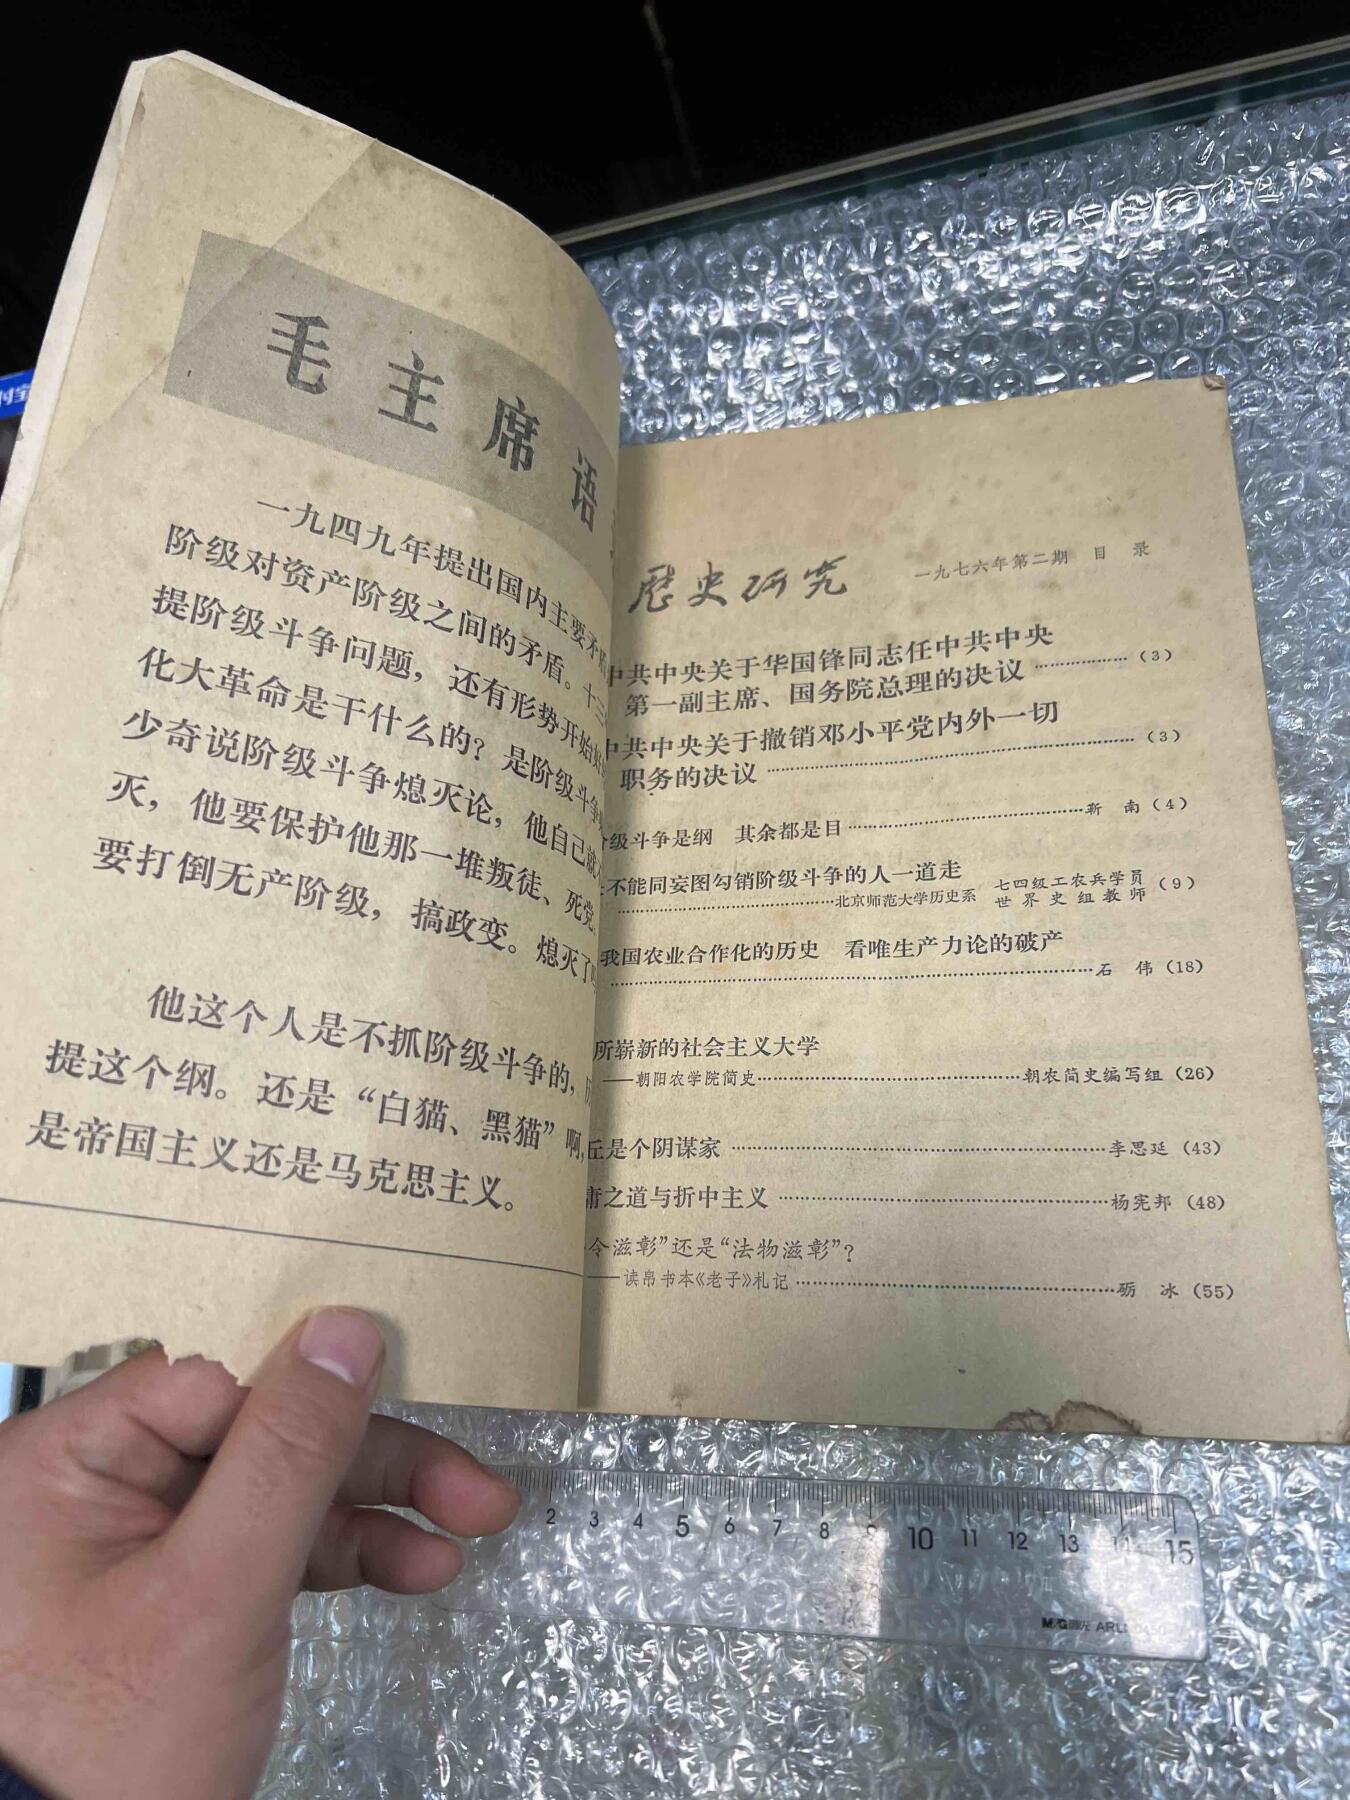 毛主席语
一九四九年提出国内主要矛
阶级对资产阶级之间的矛盾。十三
提阶级斗争问题，还有形势开始好
化大革命是干什么的？是阶级斗争
少奇说阶级斗争熄灭论，他自己就
灭，他要保护他那一堆叛徒、死党
要打倒无产阶级，搞政变。熄灭了
他这个人是不抓阶级斗争的，
提这个纲。还是“白猫、黑猫”啊，
是帝国主义还是马克思主义。
历史研究 一九七六年第二期 目 录
中共中央关于华国锋同志任中共中央
第一副主席、国务院总理的决议 (3)
中共中央关于撤销邓小平党内外一切
职务的决议 (3)
级斗争是纲 其余都是目 靳 南 (4)
不能同妄图勾销阶级斗争的人一道走
北京师范大学历史系 七四级工农兵学员 世界史组教师 (9)
我国农业合作化的历史 看唯生产力论的破产
石 伟 (18)
所崭新的社会主义大学
——朝阳农学院简史 朝农简史编写组 (26)
丘是个阴谋家 李思延 (43)
庸之道与折中主义 杨宪邦 (48)
令滋彰”还是“法物滋彰”？
——读帛书本《老子》札记 砺 冰 (55)
2 3 4 5 6 7 8 9 10 11 12 13 14 15
M&G晨光
付宝